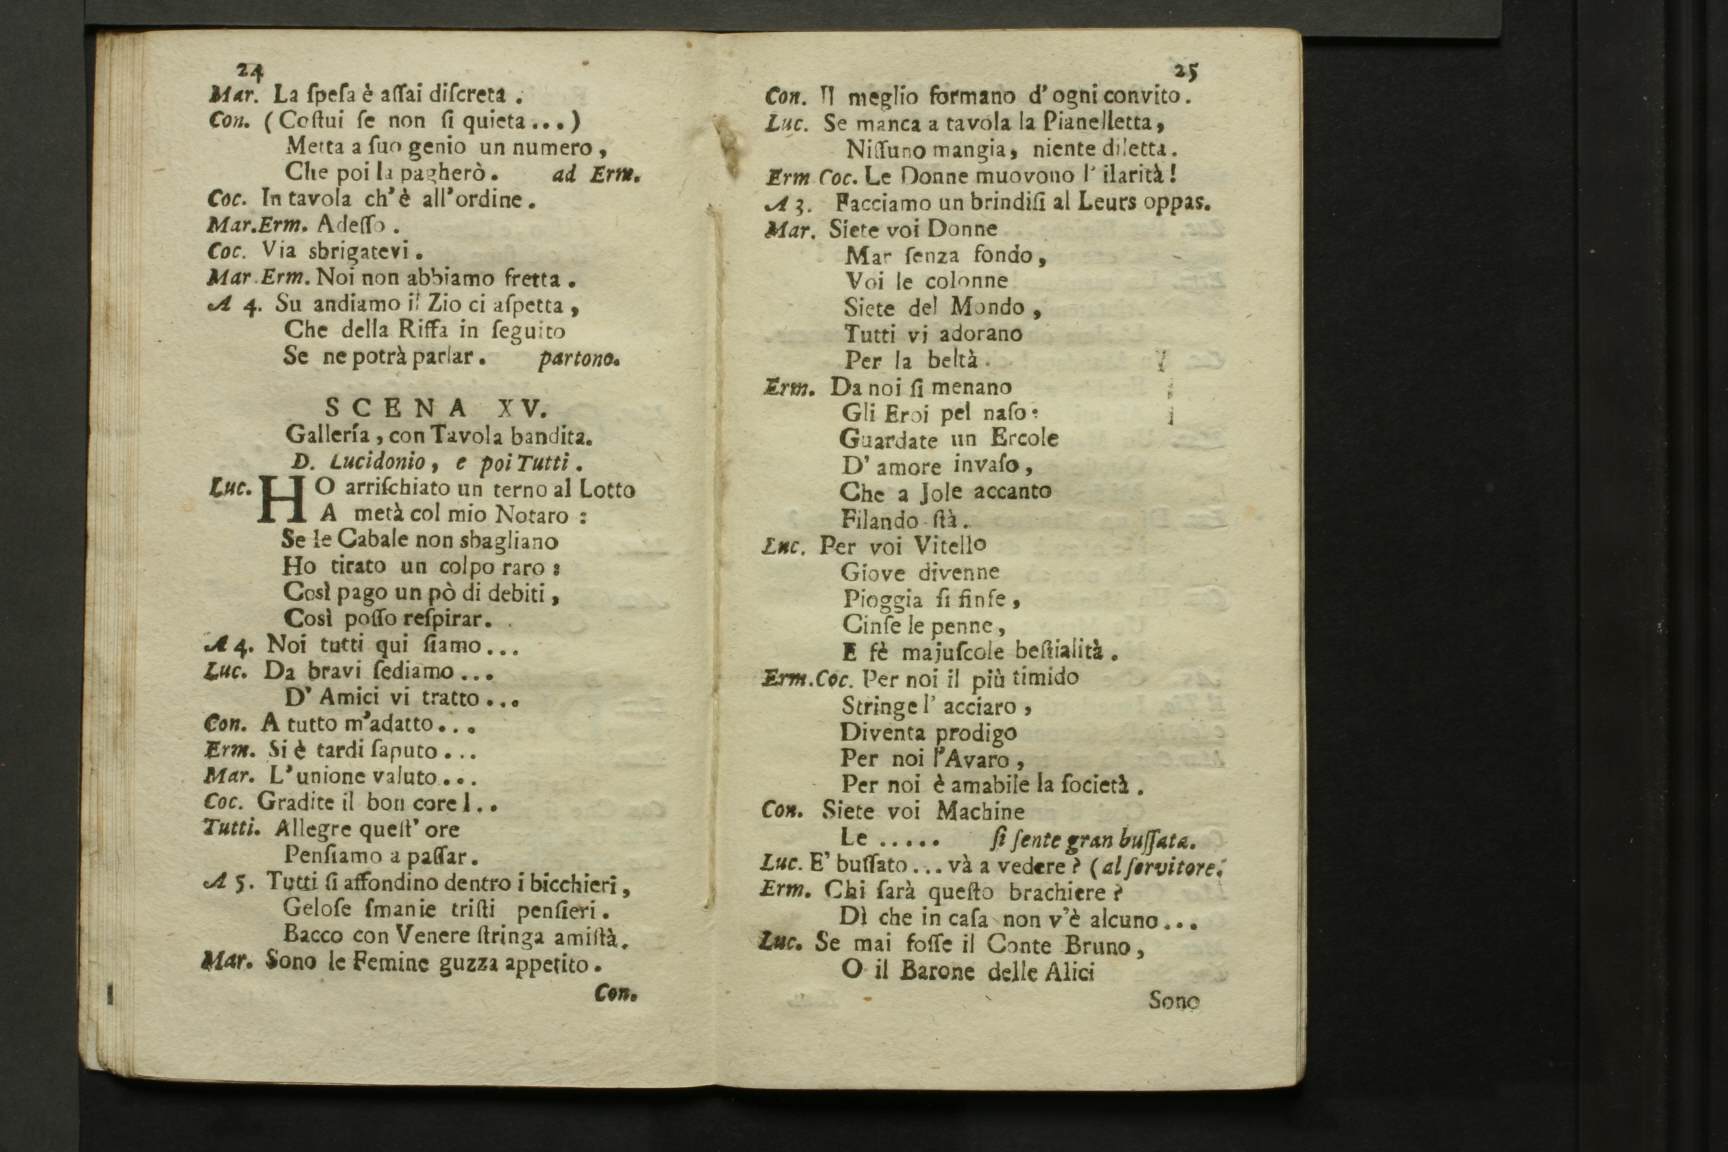 24
Mar. La ſpeſa è aſſai diſcreta .
Con. ( Coſtui ſe non ſi quieta ... )
Metta a ſuo genio un numero ,
Che poi la pagherò . ad Erm.
Coc. In tavola ch'è all'ordine .
Mar.Erm. Adeſſo .
Coc. Via sbrigatevi .
Mar.Erm. Noi non abbiamo fretta .
A 4. Su andiamo il Zio ci aſpetta ,
Che della Riffa in ſeguito
Se ne potrà parlar . partono.
SCENA XV.
Gallería , con Tavola bandita.
D. Lucidonio , e poi Tutti .
Luc. HO arriſchiato un terno al Lotto
A metà col mio Notaro :
Se le Cabale non sbagliano
Ho tirato un colpo raro :
Così pago un pò di debiti ,
Così poſſo reſpirar .
A 4. Noi tutti qui ſiamo ...
Luc. Da bravi ſediamo ...
D' Amici vi tratto ...
Con. A tutto m'adatto ...
Erm. Si è tardi ſaputo ...
Mar. L'unione valuto ...
Coc. Gradite il bon core l . .
Tutti. Allegre queſt' ore
Penſiamo a paſſar .
A 5. Tutti ſi affondino dentro i bicchieri ,
Geloſe ſmanie triſti penſieri .
Bacco con Venere ſtringa amiſtà .
Mar. Sono le Femine guzza appetito .
Con.
25
Con. Il meglio formano d' ogni convito .
Luc. Se manca a tavola la Pianelletta ,
Niſſuno mangia , niente diletta .
Erm Coc. Le Donne muovono l' ilarità !
A 3. Facciamo un brindiſi al Leurs oppas.
Mar. Siete voi Donne
Mar ſenza fondo ,
Voi le colonne
Siete del Mondo ,
Tutti vi adorano
Per la beltà .
Erm. Da noi ſi menano
Gli Eroi pel naſo :
Guardate un Ercole
D' amore invaſo ,
Che a Jole accanto
Filando ſtà .
Luc. Per voi Vitello
Giove divenne
Pioggia ſi finſe ,
Cinſe le penne ,
E fè majuſcole beſtialità .
Erm.Coc. Per noi il più timido
Stringe l' acciaro ,
Diventa prodigo
Per noi l'Avaro ,
Per noi è amabile la ſocietà .
Con. Siete voi Machine
Le ..... ſi ſente gran buſſata.
Luc. E' buſſato ... và a vedere ? ( al ſervitore.
Erm. Chi ſarà queſto brachiere ?
Dì che in caſa non v'è alcuno ...
Luc. Se mai foſſe il Conte Bruno ,
O il Barone delle Alici
Sono